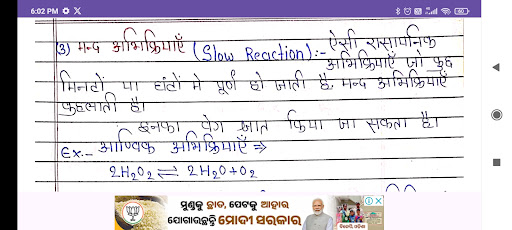 6:02 PM
3) मन्द अभिक्रियाएँ (Slow Reaction):- ऐसी रासायनिक
अभिक्रियाएँ जो कुछ
मिनटों या घंटों मे पूर्ण हो जाती है, मन्द अभिक्रियाएँ
कहलाती है।
इनका वेग ज्ञात किया जा सकता है।
Ex.- आण्विक अभिक्रियाएँ ⇒
2H₂O₂ ⇌ 2H₂O+O₂
ମୁଣ୍ଡକୁ ଛାତ, ପେଟକୁ ଆହାର
ଯୋଗାଉଛନ୍ତି ମୋଦୀ ସରକାର